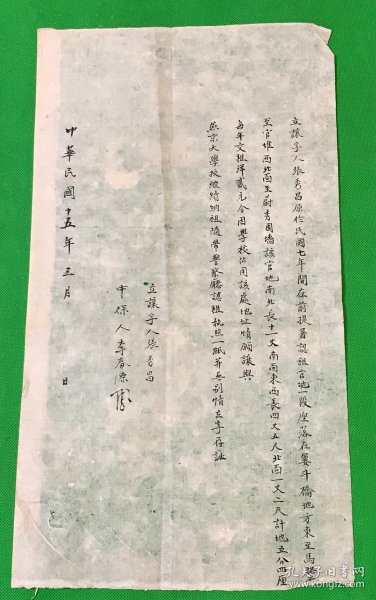 立讓字人張秀昌原於民國七年間在前提署認租官地一段座落在簍斗橋地方東至馬路
至官堆西北面至蔚秀園墻該官地南北長十一丈南面東西長四丈五尺北面一丈二尺計地五分四厘
每年交租洋貳元今因學校佔用該處地址情願讓與
燕京大學校繼續納租隨帶警察廳認租執照一紙並無別情立字存証
立讓字人張秀昌
中保人李春源
中華民國十五年三月 日
孔夫子旧书网